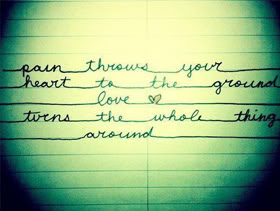 pain throws your
heart to the ground
love ♡
turns the whole thing
around